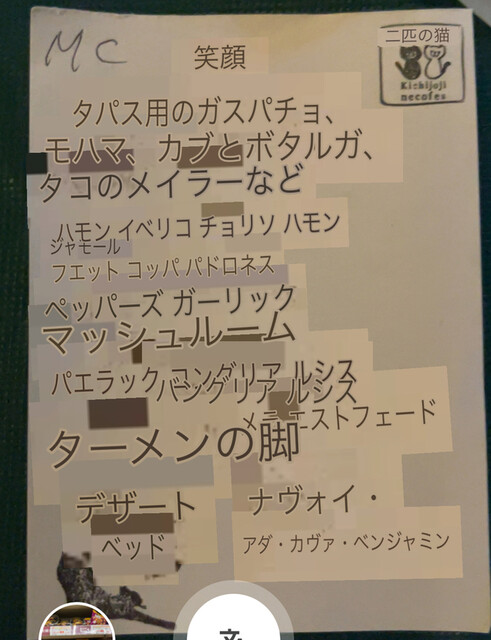 MC
笑顔
二匹の猫
Kichijoji
necofes
タパス用のガスパチョ、
モハマ、カブとボタルガ、
タコのメイラーなど
ハモン イベリコ チョリソ ハモン
ジャモール
フエット コッパ パドロネス
ペッパーズ ガーリック
マッシュルーム
パエラック
バングリア ルシス
エストフェード
ターメンの脚
デザート ナヴォイ・
ベッド アダ・カヴァ・ベンジャミン